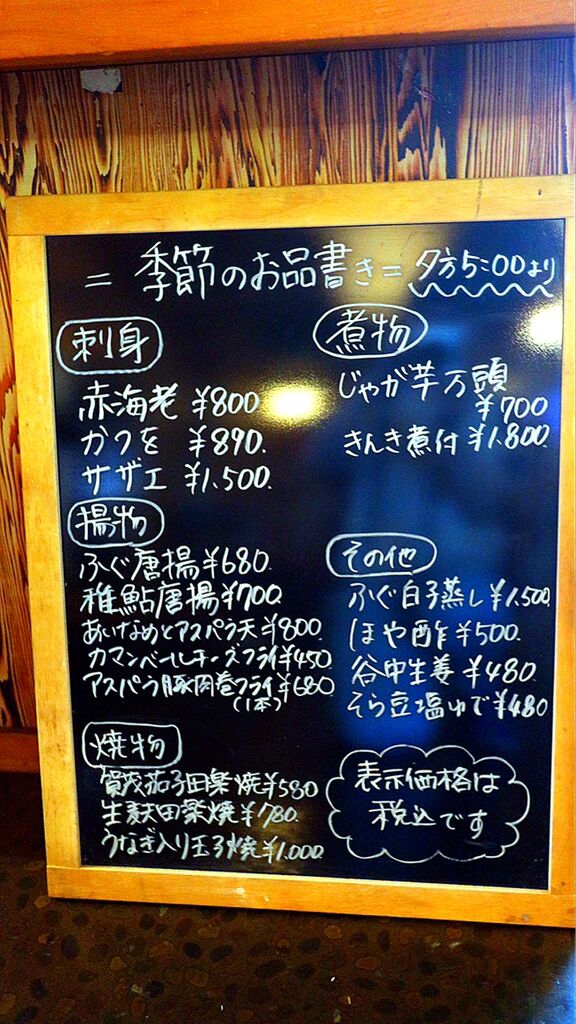 = 季節のお品書き = 夕方5:00より
刺身
赤海老 ¥800
かつを ¥890.
サザエ ¥1,500.
揚物
ふぐ唐揚 ¥680.
稚鮎唐揚 ¥700.
あいなめとアスパラ天 ¥800.
カマンベールチーズフライ ¥450
アスパラ豚肉巻フライ ¥680
(1本)
焼物
賀茂茄子田楽焼 ¥580
生麩田楽焼 ¥780.
うなぎ入り玉子焼 ¥1,000.
煮物
じゃが芋万頭
¥700
きんき煮付 ¥1,800.
その他
ふぐ白子蒸し ¥1,500.
ほや酢 ¥500.
谷中生姜 ¥480.
そら豆塩ゆで ¥480
表示価格は
税込です